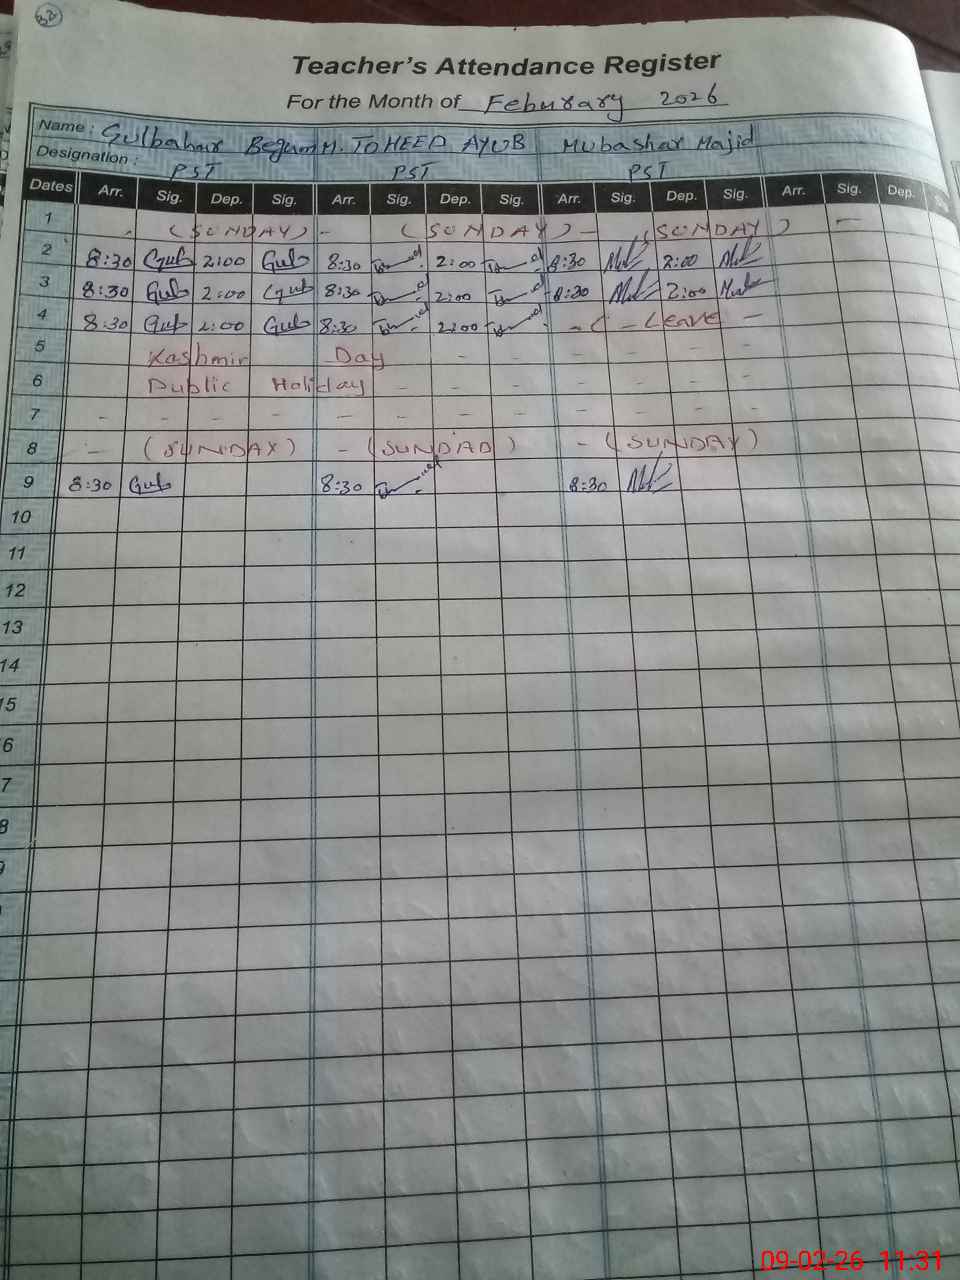 32
Teacher's Attendance Register
For the Month of Feburary 2026
Name: Gulbahar Begum M. TOHEED AYUB Mubashar Majid
Designation: PST PST PST
Dates Arr. Sig. Dep. Sig. Arr. Sig. Dep. Sig. Arr. Sig. Dep. Sig. Arr. Sig. Dep. Sig
1 - (SUNDAY) - (SUNDAY) - (SUNDAY) -
2 8:30 Gul 2:00 Gul 8:30 2:00 8:30 2:00
3 8:30 Gul 2:00 Gul 8:30 2:00 8:30 2:00
4 8:30 Gul 2:00 Gul 8:30 2:00 - C - Leave -
5 Kashmir Day - - - - - -
6 Public Holiday - - - - - -
7 - - - - - - - - - - -
8 - (SUNDAY) - (SUNDAD) - (SUNDAY)
9 8:30 Gul 8:30 8:30
10
11
12
13
14
15
6
7
8
09-02-26 11:31